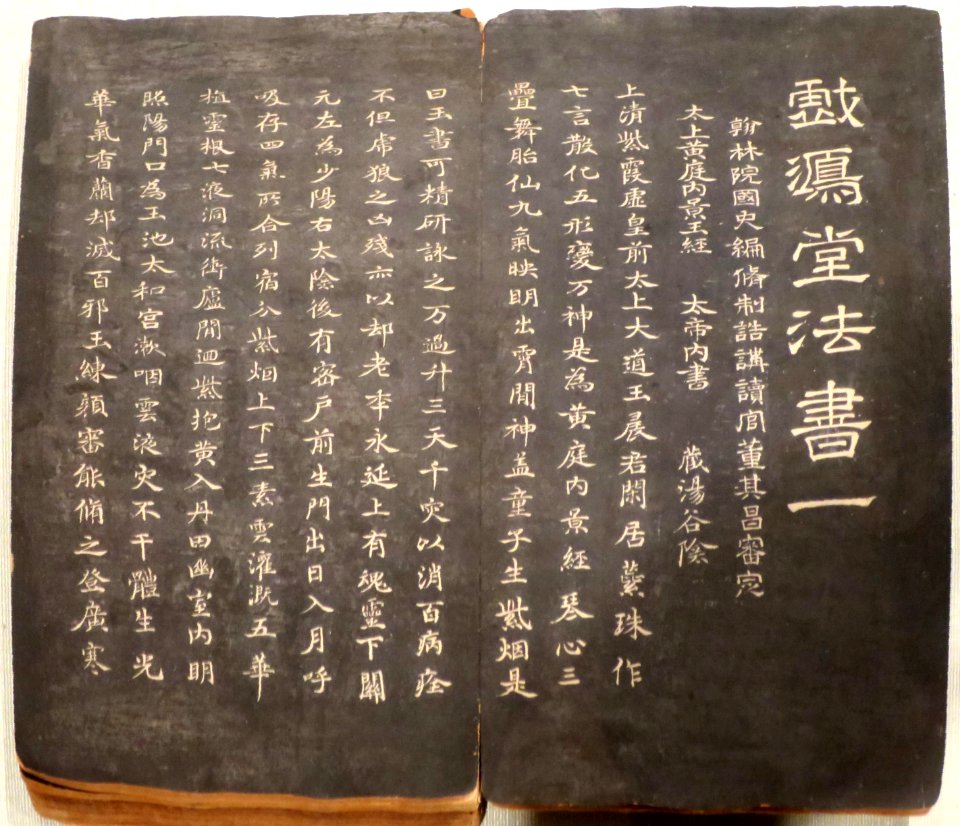 戲鴻堂法書一
翰林院國史編脩制誥講讀官董其昌審定
太上黃庭內景玉經 太帝內書 藏湯谷陰
上清紫霞虛皇前太上大道玉晨君閑居蘂珠作
七言散化五形變万神是為黃庭內景經琴心三
疊舞胎仙九氣映明出霄間神盖童子生紫烟是
曰玉書可精研詠之万過升三天千灾以消百病痊
不但虎狼之凶殘亦以却老年永延上有魂靈下關
元左為少陽右太陰後有密户前生門出日入月呼
吸存四氣所合列宿分紫烟上下三素雲灌溉五華
植靈根七液洞流衝廬間迴紫抱黄入丹田幽室內明
照陽門口為玉池太和宮漱咽靈液灾不干體生光
華氣香蘭却滅百邪玉練顏審能脩之登廣寒